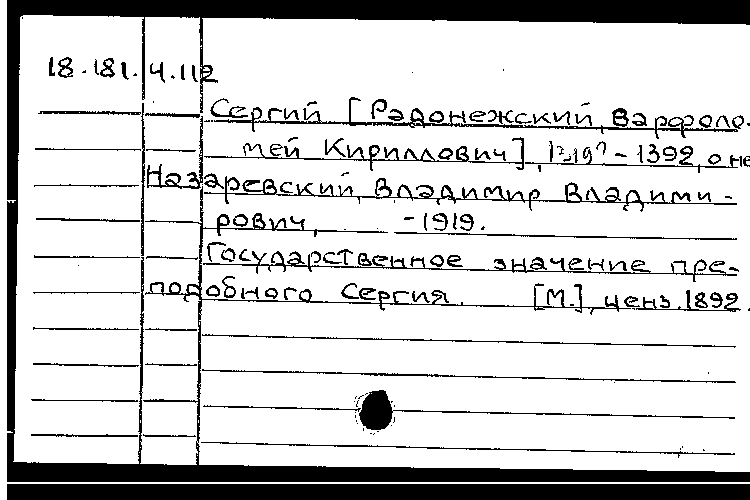 18.181.4.112
Сергий [Радонежский, Варфоло-
мей Кириллович], 1319?-1392, о не
Назаревский, Владимир Владими-
рович, -1919.
Государственное значение пре-
подобного Сергия. [М.], ценз. 1892.